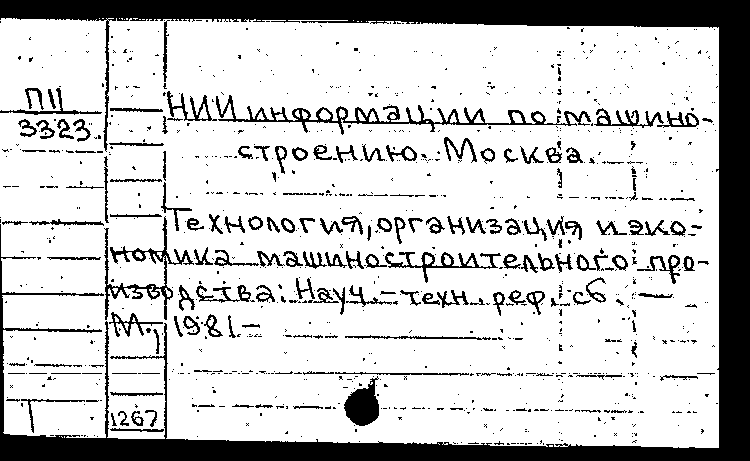 П11
3323
НИИ информации по машино-
строению. Москва.
Технология, организация и эко-
номика машиностроительного про-
изводства: Науч.-техн. реф. сб. —
М., 1981-
1267